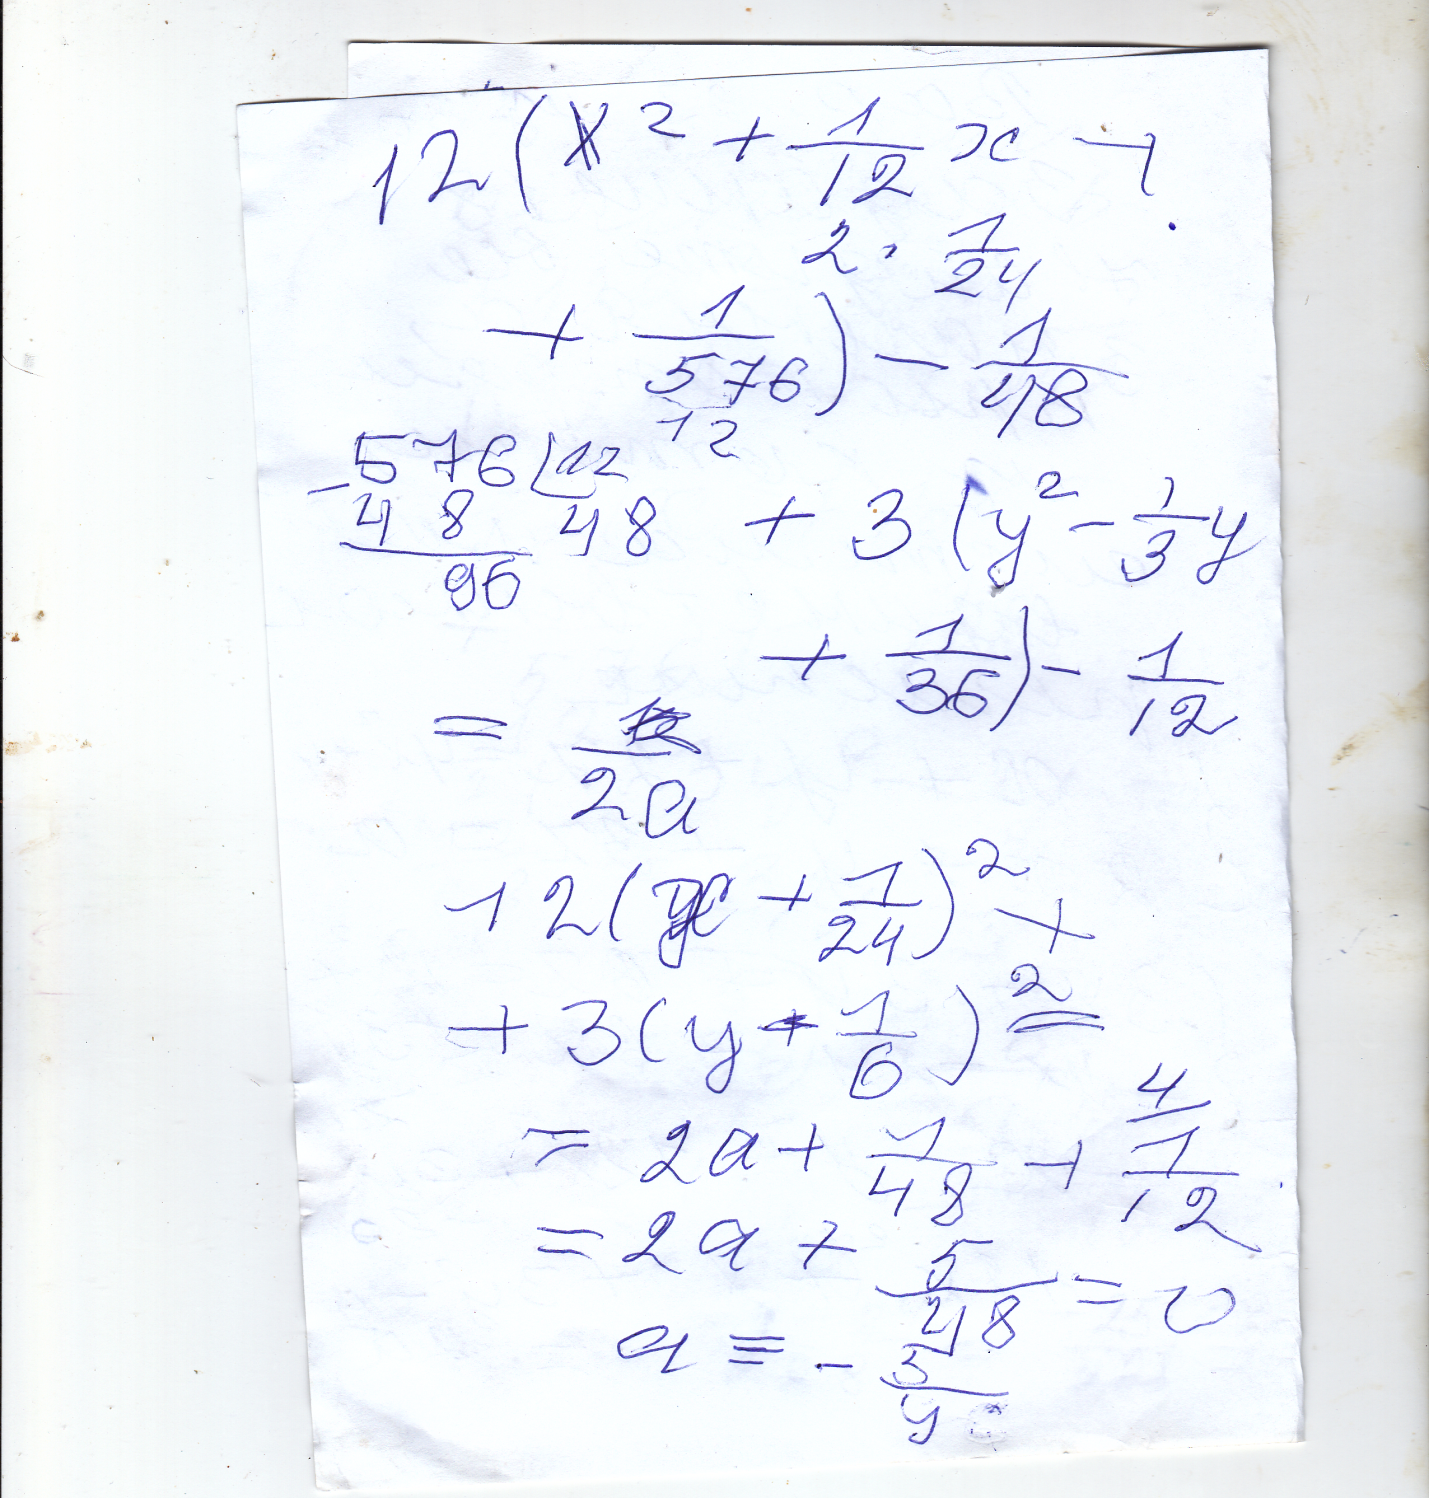 12(x² + 1/12 x +
2 · 1/24
+ 1/576) − 1/48
12
576 | 12
− 48 48
96
+ 3(y² − 1/3 y
+ 1/36) − 1/12
= /2a
12(x + 1/24)² +
+ 3(y − 1/6)² =
4
= 2a + 1/48 + 1/12
= 2a + 5/48 = 0
a = − 5/